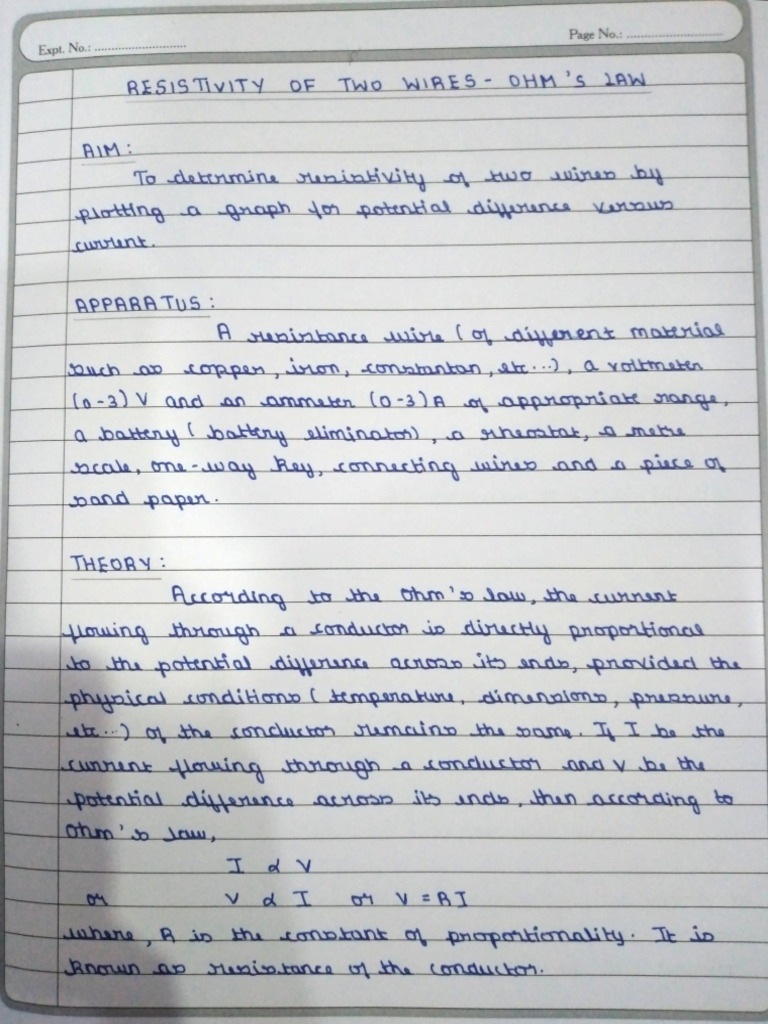 Expt. No.: ............................
Page No.: ............................
RESISTIVITY OF TWO WIRES - OHM'S LAW
AIM:
To determine resistivity of two wires by
plotting a graph for potential difference versus
current.
APPARATUS:
A resistance wire (of different material
such as copper, iron, constantan, etc...), a voltmeter
(0-3) V and an ammeter (0-3) A of appropriate range,
a battery (battery eliminator), a rheostat, a metre
scale, one-way key, connecting wires and a piece of
sand paper.
THEORY:
According to the Ohm's law, the current
flowing through a conductor is directly proportional
to the potential difference across its ends, provided the
physical conditions (temperature, dimensions, pressure,
etc...) of the conductor remains the same. If I be the
current flowing through a conductor and V be the
potential difference across its ends, then according to
Ohm's law,
I α V
or V α I or V = RI
where, R is the constant of proportionality. It is
known as resistance of the conductor.